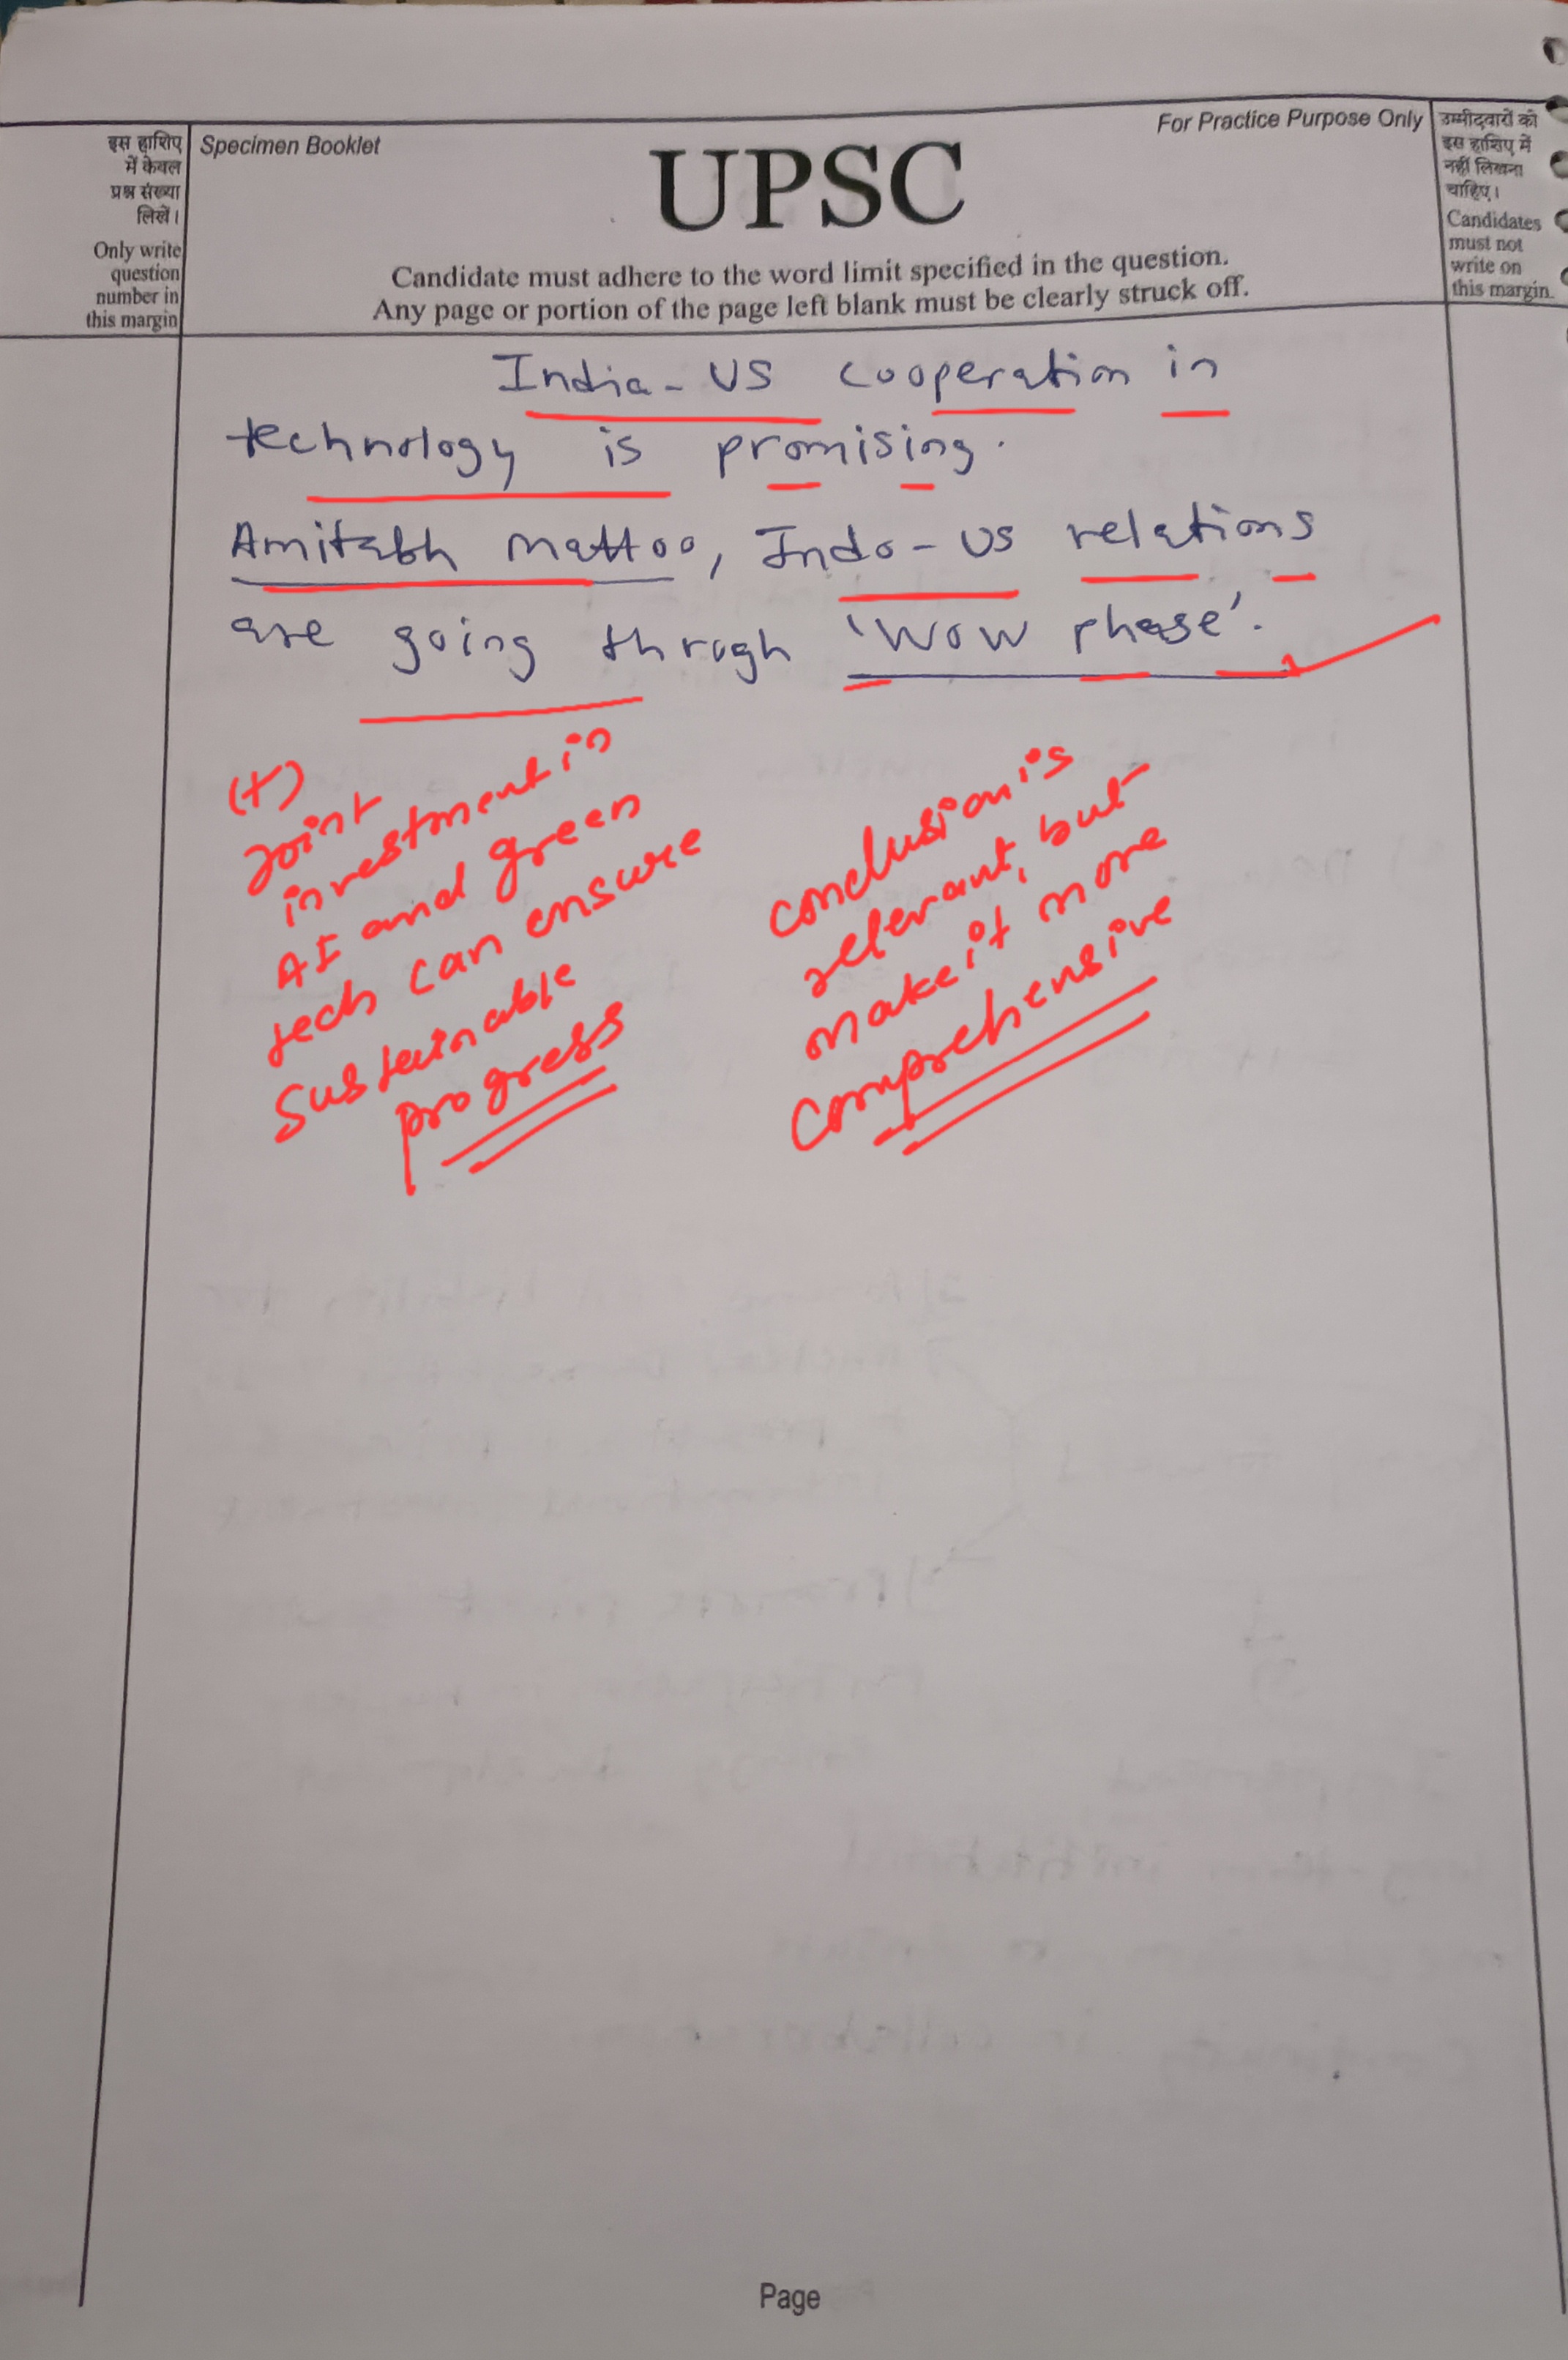 इस हाशिए
में केवल
प्रश्न संख्या
लिखें।
Only write
question
number in
this margin
Specimen Booklet
For Practice Purpose Only
UPSC
Candidate must adhere to the word limit specified in the question.
Any page or portion of the page left blank must be clearly struck off.
उम्मीदवारों को
इस हाशिए में
नहीं लिखना
चाहिए।
Candidates
must not
write on
this margin.
India-US cooperation in
technology is promising.
Amitabh Mattoo, Indo-US relations
are going through 'WOW phase'.
(+)
Joint
investment in
AI and green
tech can ensure
sustainable
progress
conclusion is
relevant, but
make it more
comprehensive
Page